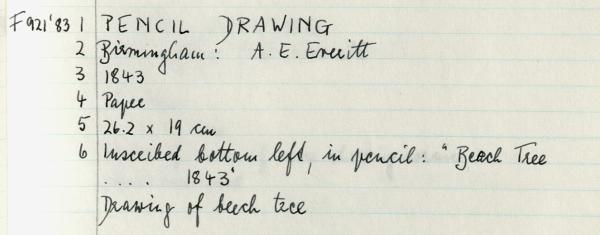 F921'83 1 PENCIL DRAWING
2 Birmingham: A. E. Everitt
3 1843
4 Paper
5 26.2 x 19 cm
6 Inscribed bottom left, in pencil: "Beach Tree
.... 1843"
Drawing of beech tree